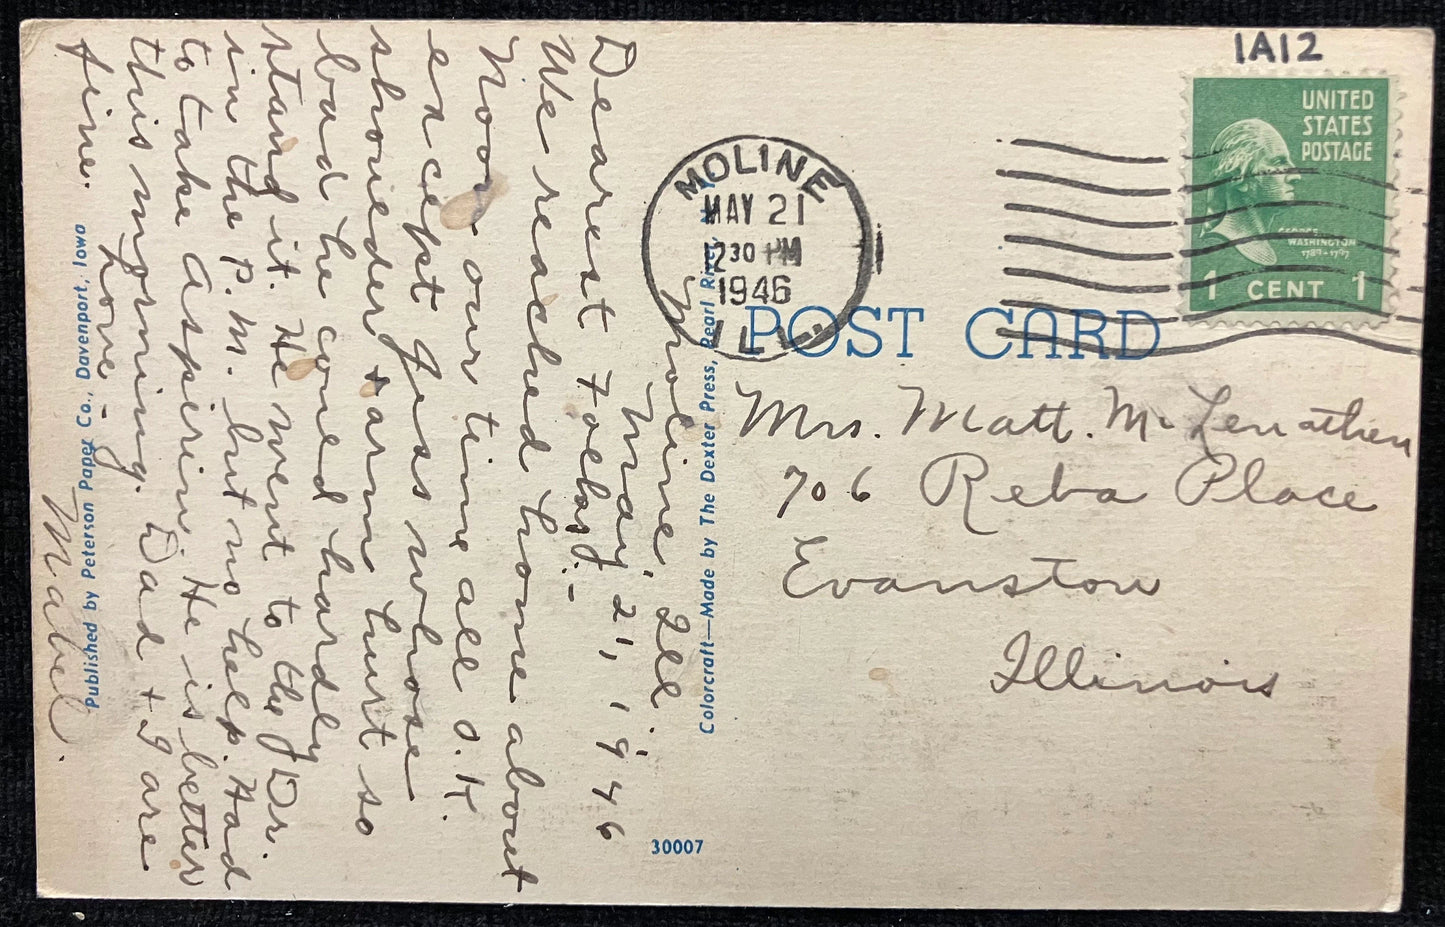 Moline, Ill.
May 21, 1946
Dearest Folks:-
We reached home about
Noon - our time all O.K.
except Gus whose
shoulder & arm hurt so
bad he could hardly
stand it. He went to the Dr.
in the P.M. but no help. Had
to take Aspirin. He is better
this morning. Dad & I are
fine. Love -
Mabel.
Published by Peterson Paper Co., Davenport, Iowa
Colorcraft—Made by The Dexter Press, Pearl River,
30007
1A12
UNITED
STATES
POSTAGE
GEORGE
WASHINGTON
1789-1797
1 CENT 1
MOLINE
MAY 21
1230 PM
1946
ILL.
POST CARD
Mrs. Matt. McLenathen
706 Reba Place
Evanston
Illinois